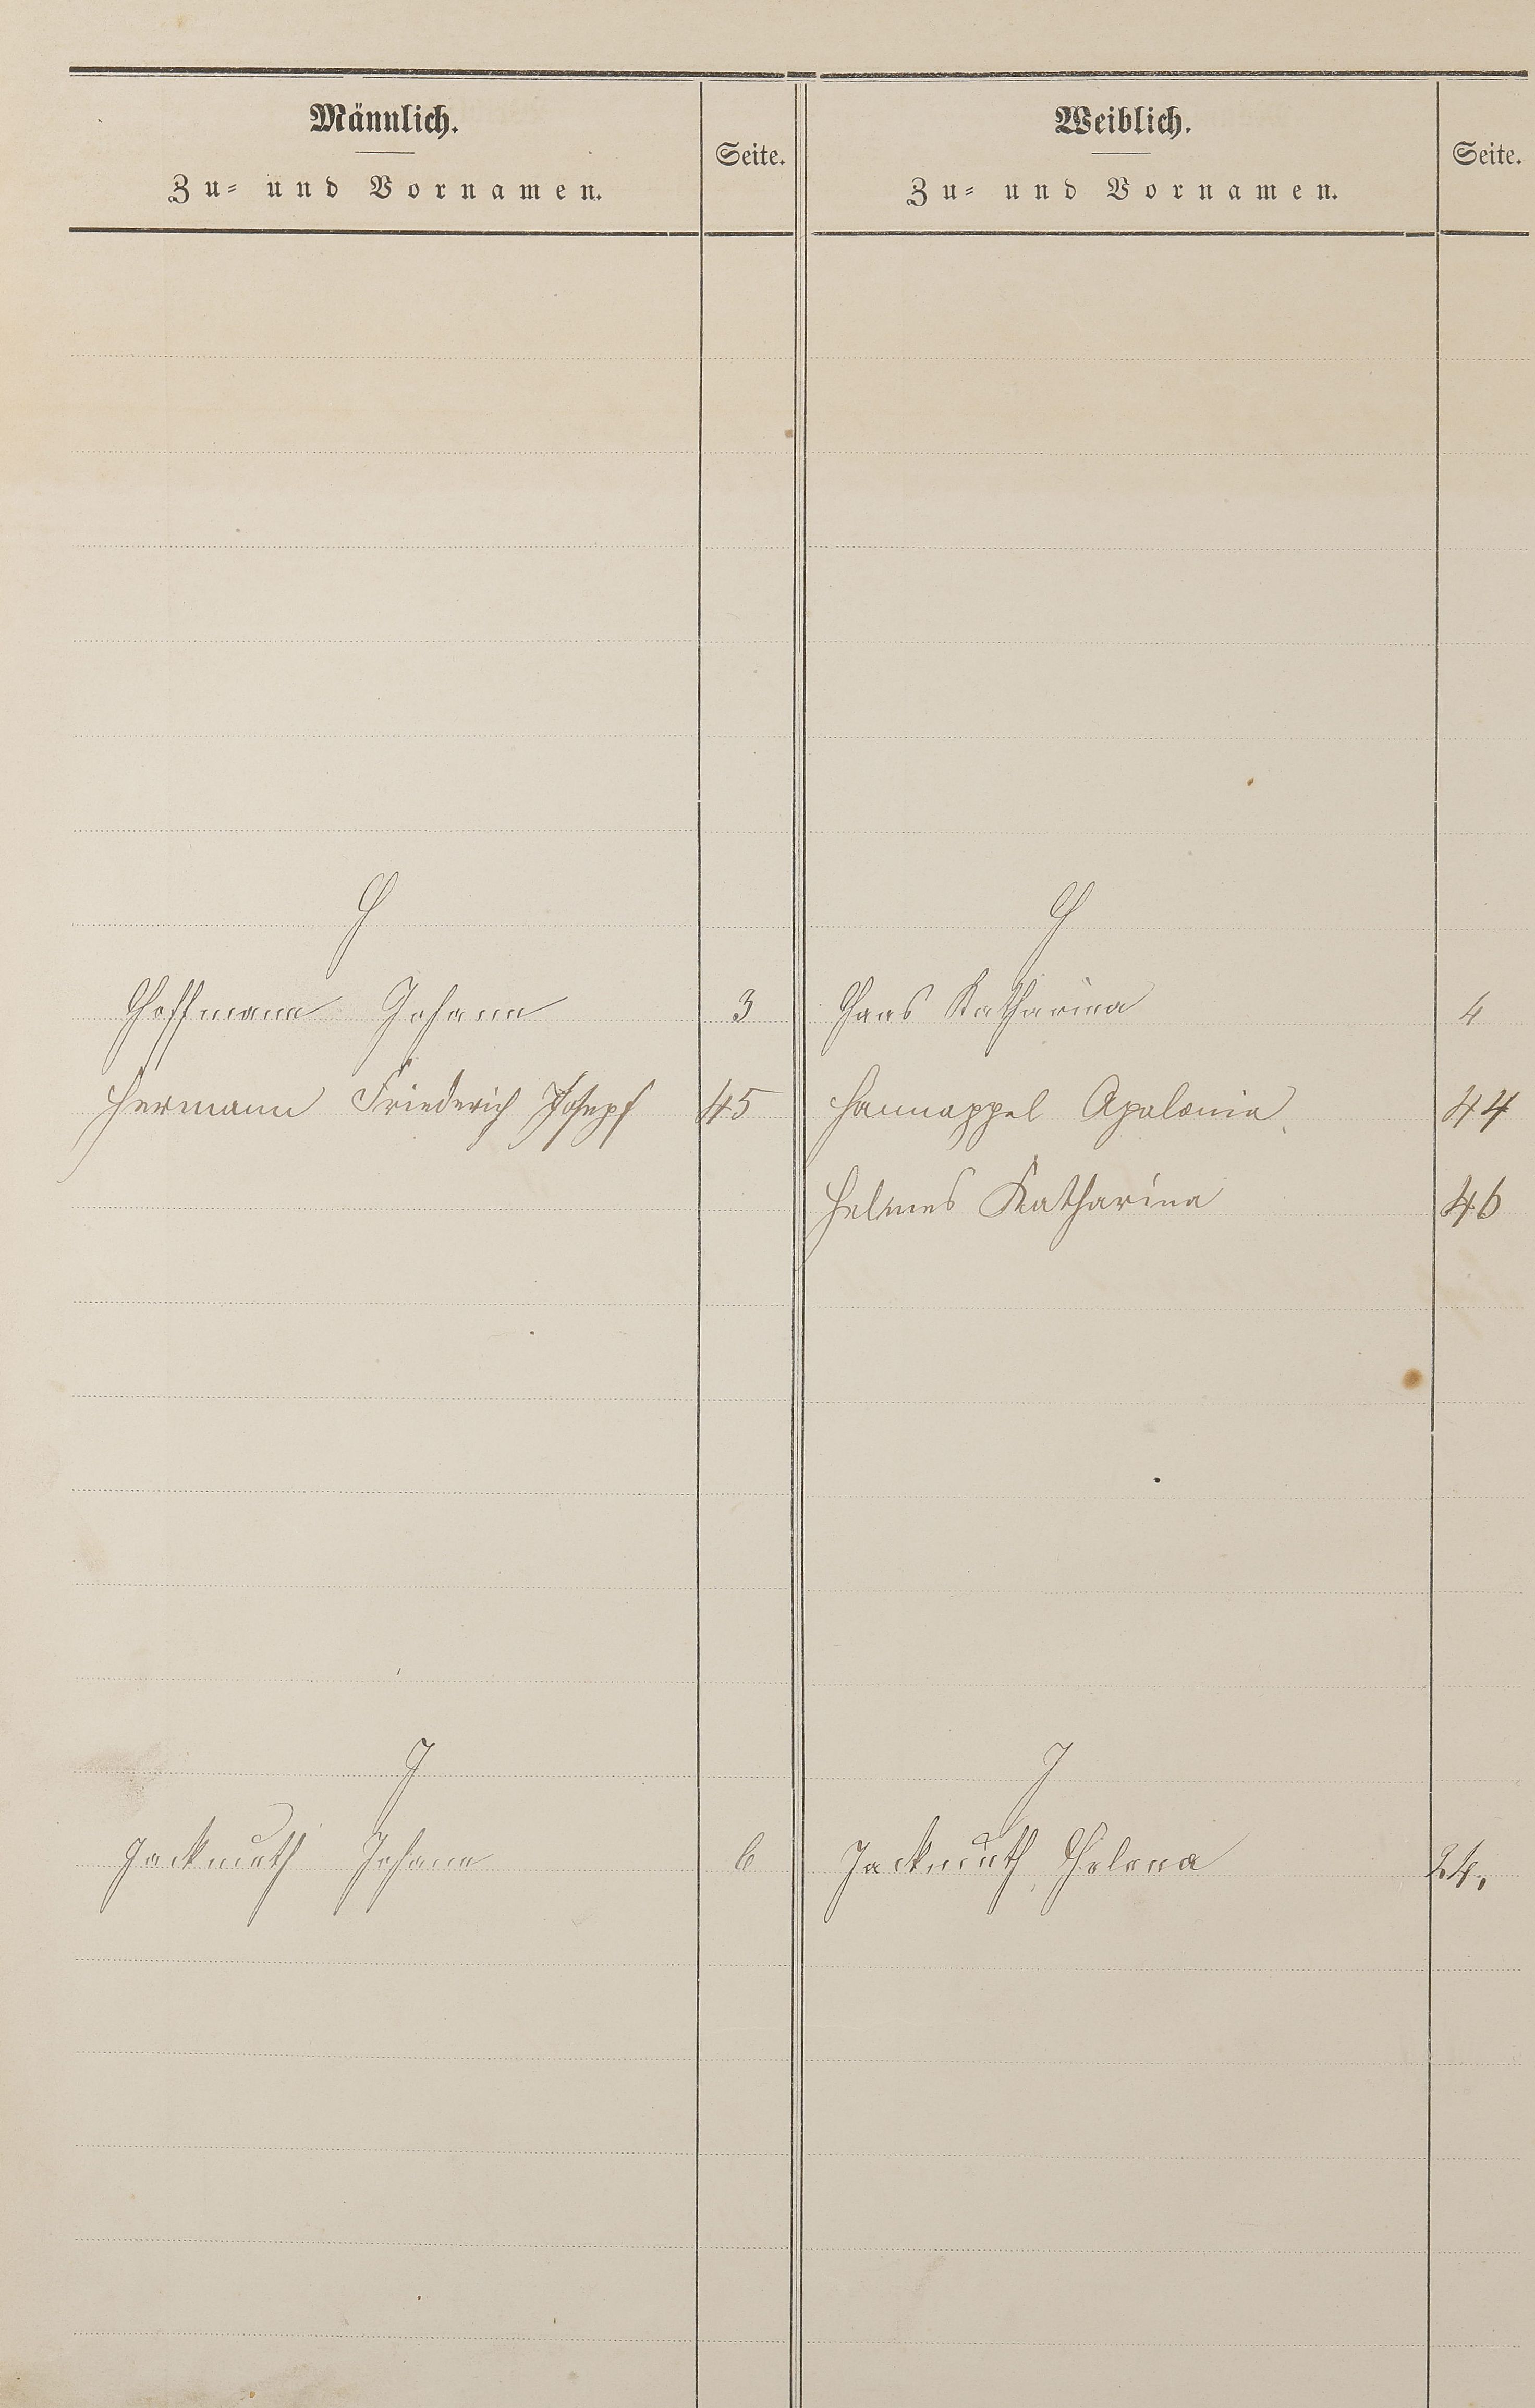 Männlich.
Zu- und Vornamen.
Seite.
Weiblich.
Zu- und Vornamen.
Seite.
H
H
Hoffmann Johann 3
Haas Katharina 4
Hermann Friederich Josepf 45
Hannappel Apolonia 44
Helmes Katharina 46
J
J
Jackmuth Johann 6
Jackmuth Helena 24.